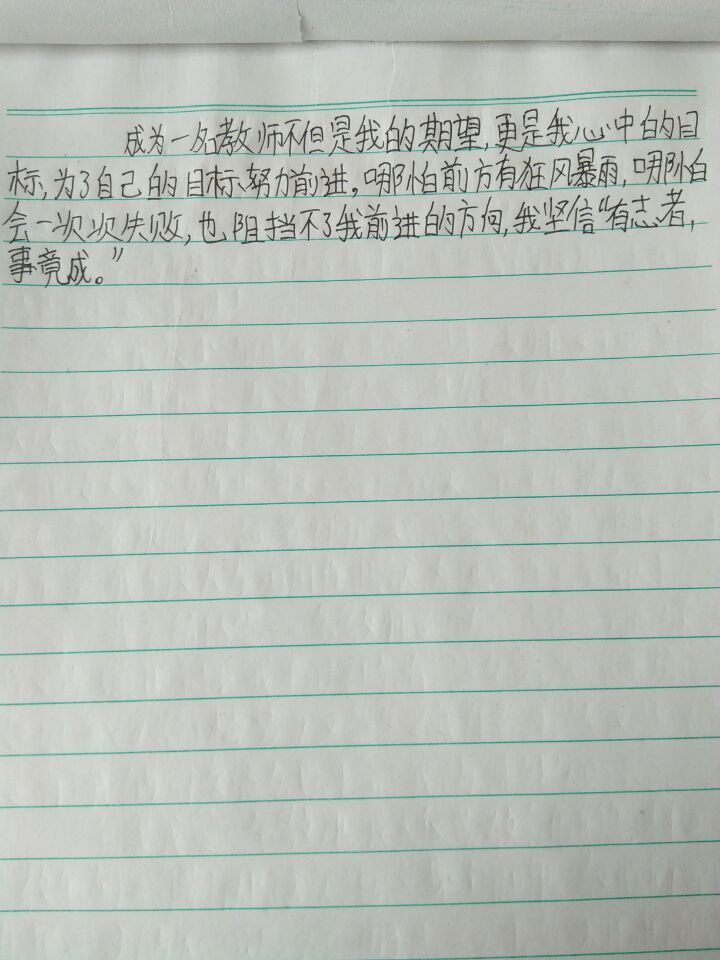 成为一名教师不但是我的期望,更是我心中的目
标,为了自己的目标努力前进。哪怕前方有狂风暴雨,哪怕
会一次次失败,也阻挡不了我前进的方向,我坚信“有志者,
事竟成。”